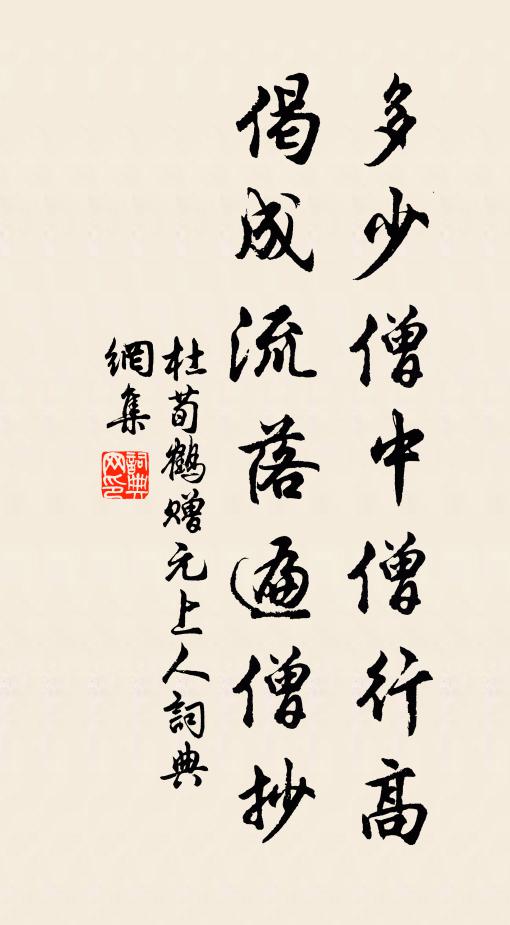 多少僧中僧行高
偈成流落遍僧抄
杜荀鶴贈元上人詞典
網集
詞典
网印